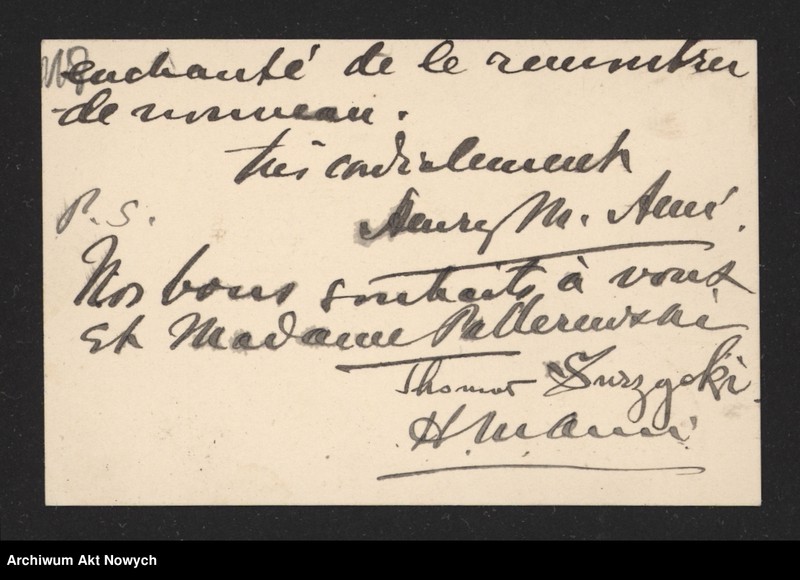 enchanté de le rencontrer
de nouveau.
très cordialement
Henry M. Ami.
P. S.
Nos bons souhaits à vous
et Madame Paderewski
Thomas Surzycki.
H. M. Ami.
Archiwum Akt Nowych